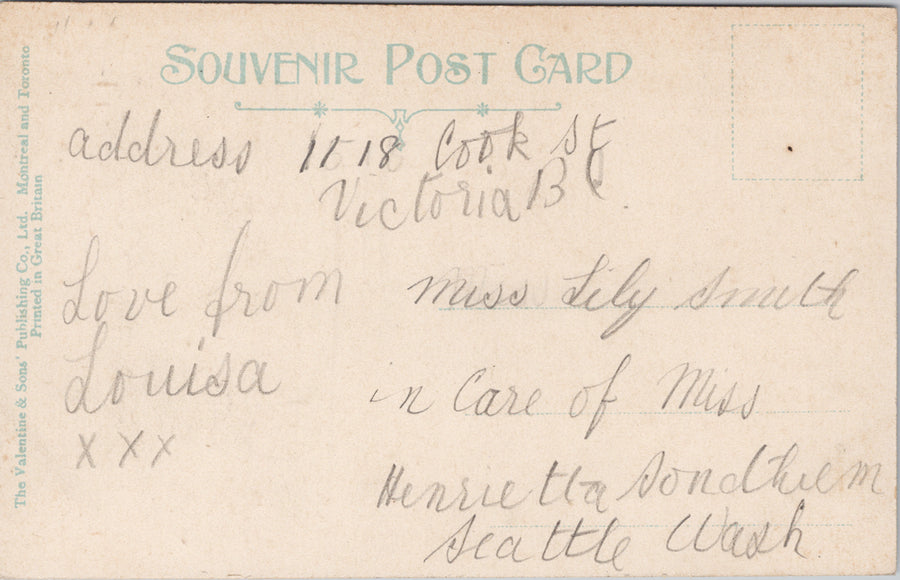 SOUVENIR POST CARD
address 1518 Cook St
Victoria B C.
Love from
Louisa
x x x
Miss Lily Smith
in Care of Miss
Henrietta Sondhiem
Seattle Wash
The Valentine & Sons' Publishing Co., Ltd. Montreal and Toronto
Printed in Great Britain